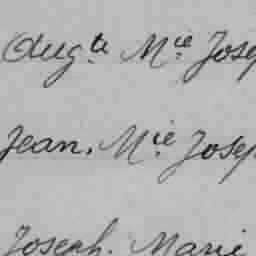 Augte Mie Josep
Jean. Mie Josep
Joseph. Marie